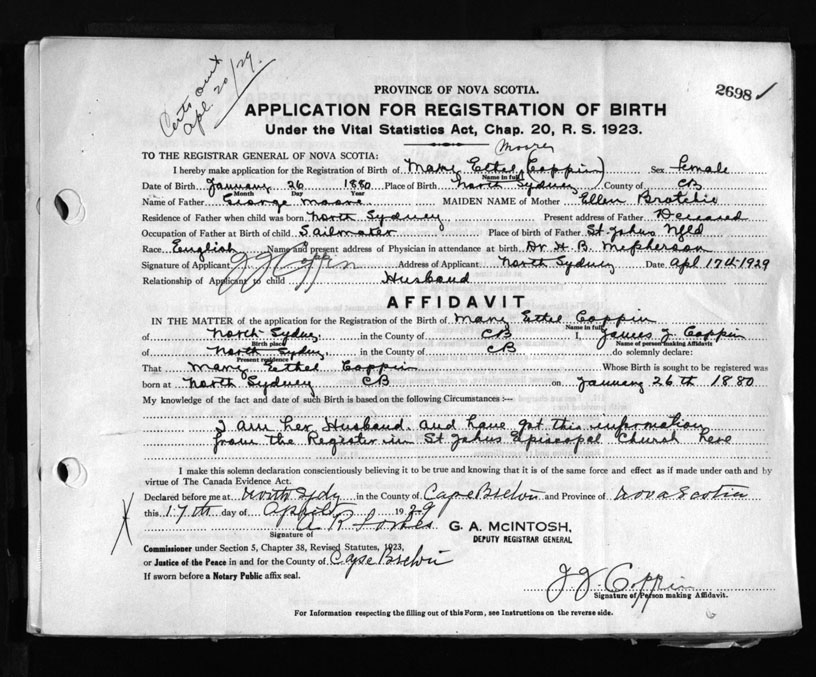 Certs out
Apl. 20/29.
PROVINCE OF NOVA SCOTIA.
2698 ✓
APPLICATION FOR REGISTRATION OF BIRTH
Under the Vital Statistics Act, Chap. 20, R. S. 1923.
Moore
TO THE REGISTRAR GENERAL OF NOVA SCOTIA:
I hereby make application for the Registration of Birth of Mary Ethel (Coppin) Sex female
Name in full
Date of Birth January 26 1880 Place of Birth North Sydney County of CB
Month Day Year
Name of Father George Moore MAIDEN NAME of Mother Ellen
Residence of Father when child was born North Sydney Present address of Father Deceased
Occupation of Father at Birth of child Sailmaker Place of birth of Father St Johns Nfld
Race English Name and present address of Physician in attendance at birth Dr. H. B. McPherson
Signature of Applicant J J Coppin Address of Applicant North Sydney Date Apl 17th 1929
Relationship of Applicant to child Husband
AFFIDAVIT
IN THE MATTER of the application for the Registration of the Birth of Mary Ethel Coppin
Name in full
of North Sydney in the County of CB I, James J. Coppin
Birth place Name of person making Affidavit
of North Sydney in the County of CB do solemnly declare:
Present residence
That Mary Ethel Coppin Whose Birth is sought to be registered was
born at North Sydney CB on January 26th 1880
My knowledge of the fact and date of such Birth is based on the following Circumstances :—
I am her Husband. and have got this information
from the Register in St Johns Episcopal Church here
I make this solemn declaration conscientiously believing it to be true and knowing that it is of the same force and effect as if made under oath and by
virtue of The Canada Evidence Act.
Declared before me at North Sydy in the County of Cape Breton and Province of Nova Scotia
this 17th day of April 1929
A R
Signature of
G. A. McINTOSH,
DEPUTY REGISTRAR GENERAL
Commissioner under Section 5, Chapter 38, Revised Statutes, 1923,
or Justice of the Peace in and for the County of Cape Breton
If sworn before a Notary Public affix seal.
J. J. Coppin
Signature of Person making Affidavit.
For Information respecting the filling out of this Form, see Instructions on the reverse side.